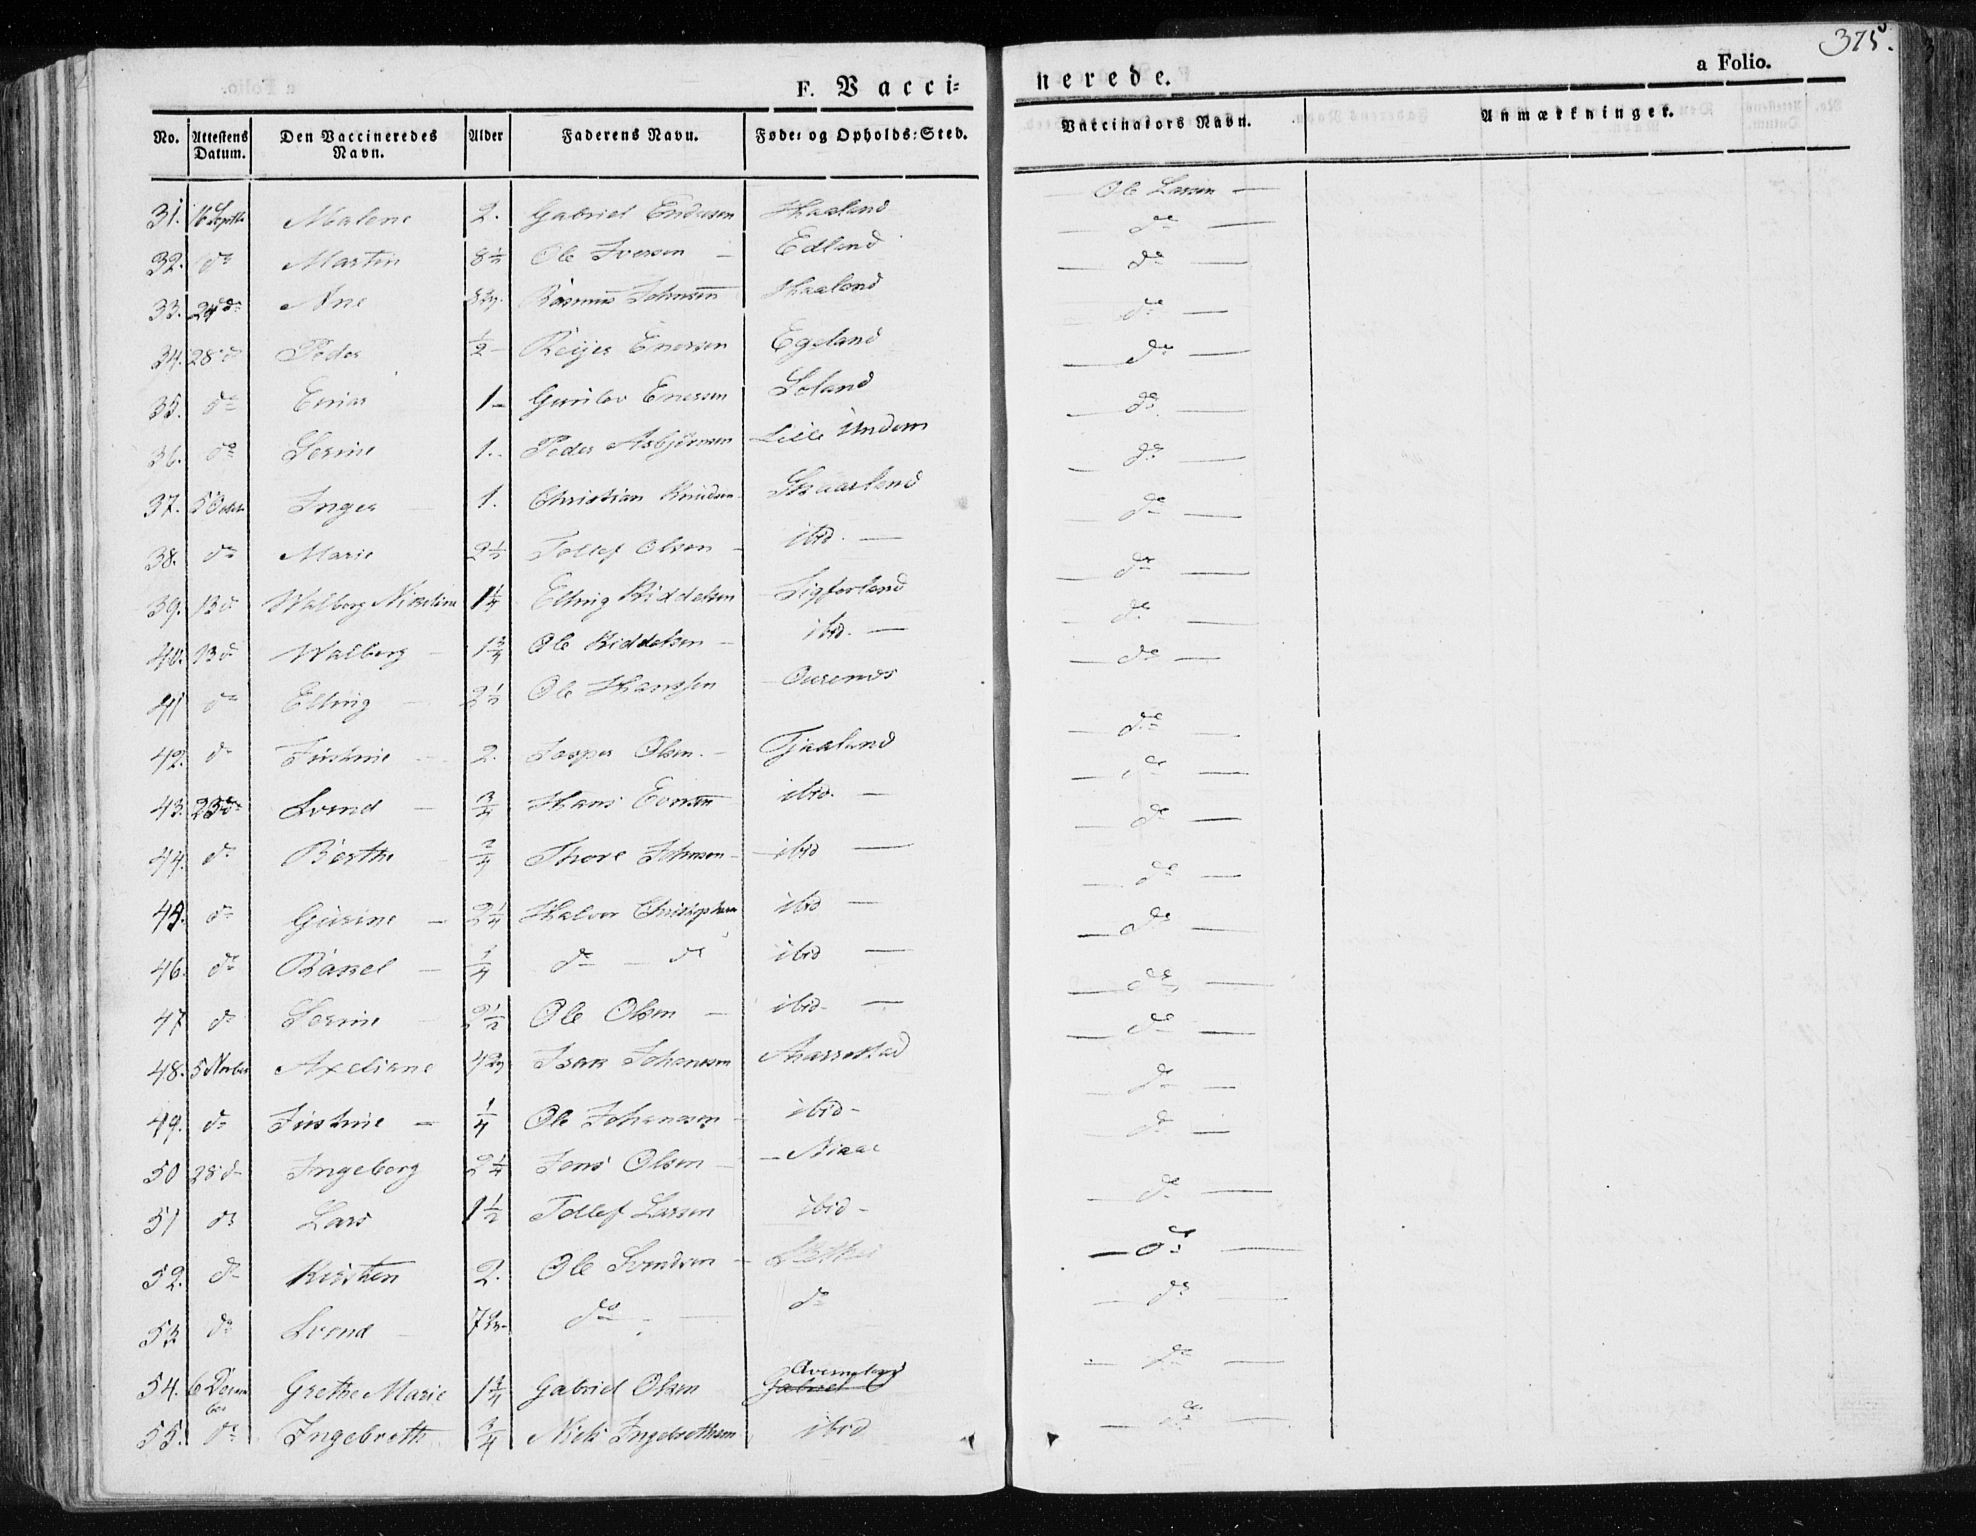 375.
F. Vacci=
nerede.
a Folio.
No. Attestens Datum. Den Vaccineredes Navn. Alder Faderens Navn. Føde= og Opholds=Sted. Vaccinators Navn. Anmærkninger.
31. 16 Septb Malene 2. Gabriel Endresen Haaland Ole Larsen —
32. do Martin 8½ Ole Iversen — Edland — do —
33. 24 do Ane Rasmus Johnsen Haaland — do —
34. 28 d Peder ½ Reijer Enersen Egeland do —
35. do 1 Gunlov Enersen Loland — do —
36. do Serine 1. Peder Asbjörnsen Lille Undem — do —
37. 5 Octob Inger 1. Christian Knudsen Skaarland — do —
38. do Marie 2½ Tollef Olsen — ibid. — — do —
39. 13 d Walborg 1¼ Elling Kiddelsen Sigforland — do —
40. 13 d Walborg 1¾ Ole Kiddelsen — ibid. — — do —
41 do Elling 2½ Ole Hansen — do —
42. do 2. Jesper Olsen — Tjaaland — do —
43. 23 do Svend — ¾ Hans ibid. — — do —
44. do Berthe ¾ Thore Johnsen — ibid — — do —
45. do Gurine — 2¼ Halvor Christophersen ibid — — do —
46. do Rassel — ¾ do — do ibid — — do —
47 do Serine 2½ Ole Olsen — ibid. — — do —
48. 5 Novber Axeliane Isak Johannesen — do —
49. do — ¼ Ole Johannesen ibid — — do —
50 28 d Ingeborg 2¼ Jens Olsen — — do —
51 do Lars 1½ Tollef Larsen ibid — — do —
52. do Kirsten 2. Ole Svendsen — — do —
53 do Svend do — do — do —
54. 6 Decem ber Grethe Marie 1¾ Gabriel Olsen Gabriel — do —
55. do Ingebreth ¾ Niels Ingebrethsen ibid — do —